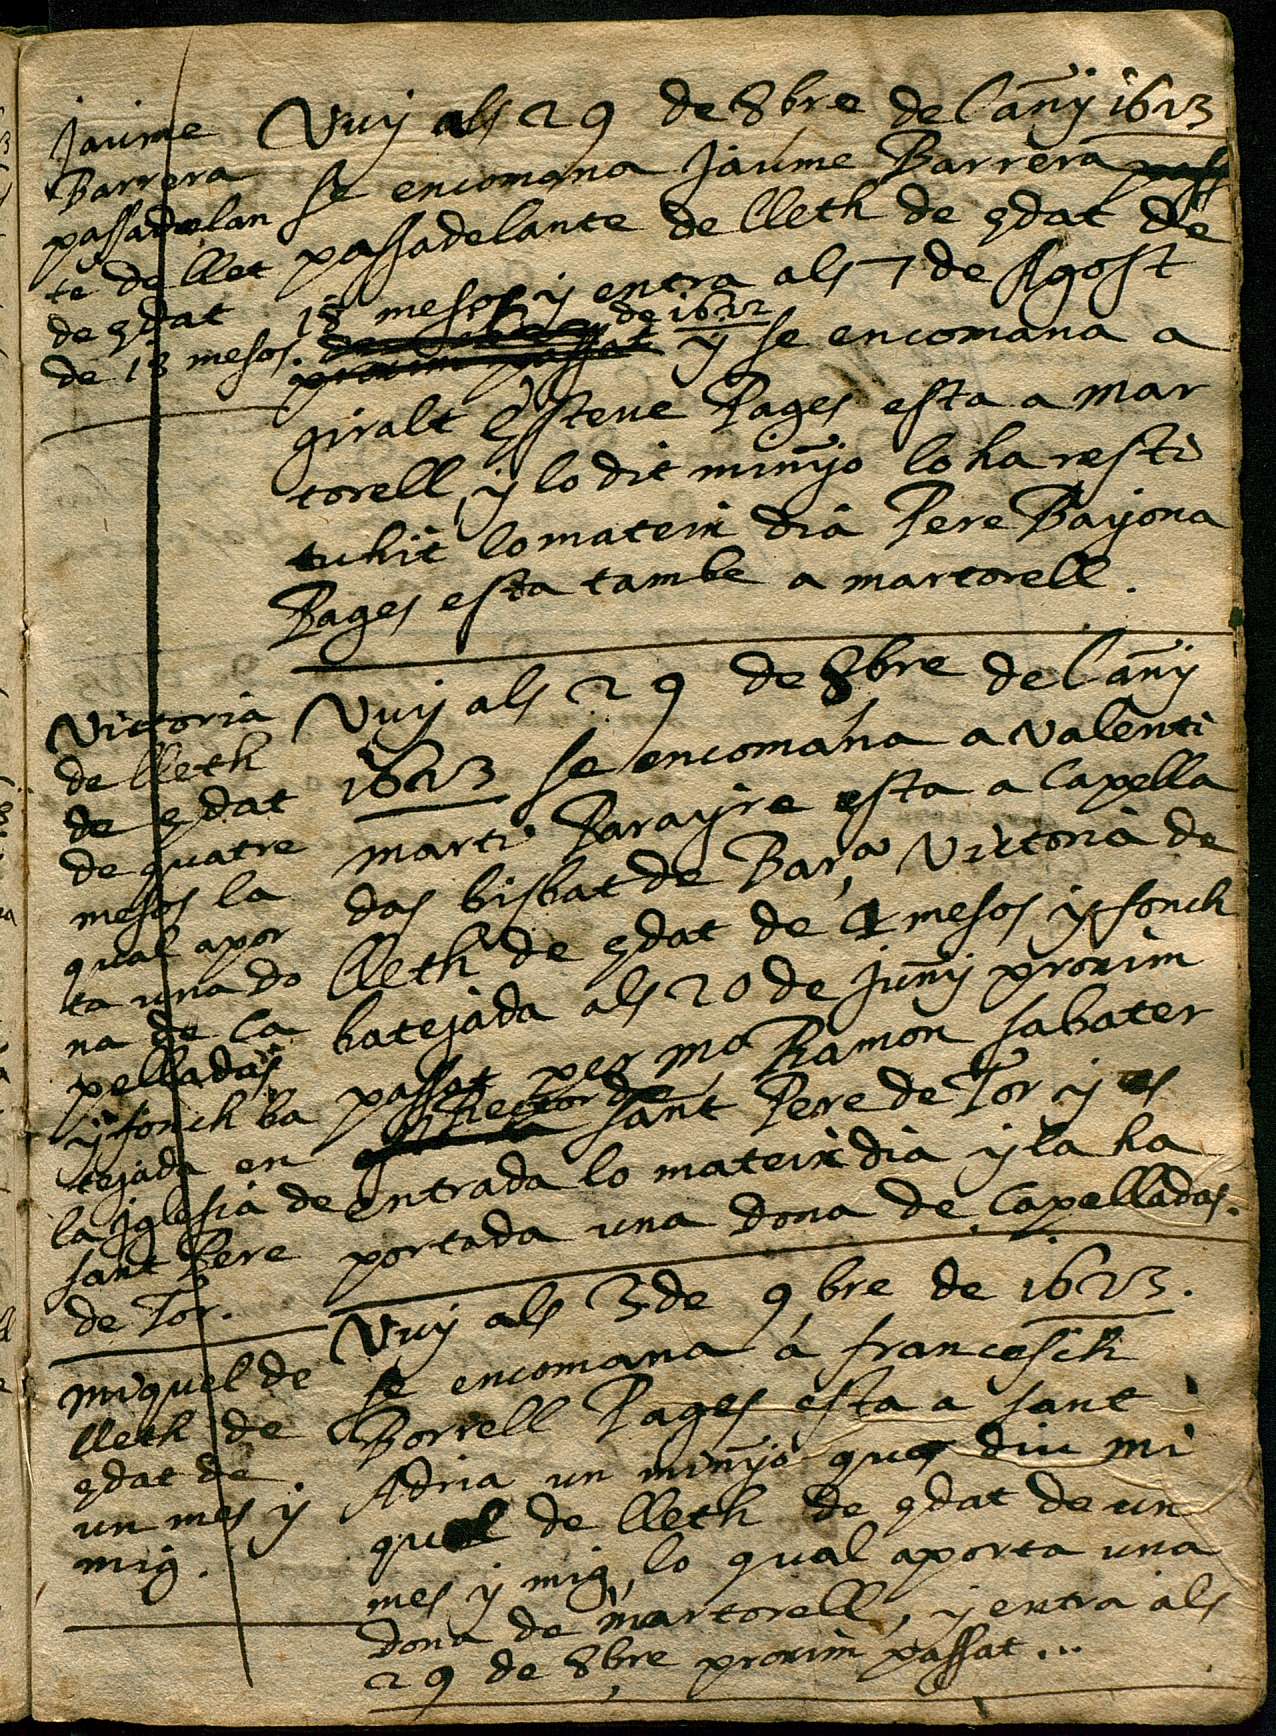 Jaume
Barrera
passadelan
te de llet
de edat
de 18 mesos.
Vuy als 29 de 8bre de l añy 1623
se encomana Jaume Barrera
passadelante de lleth de edat de
18 mesos y entra als 7 de Agost
de 1622
y se encomana a
giralt Esteve Pages esta a mar
torell, y lo dit minyo lo ha resti
tuhit lo mateix dia Pere Bayona
Pages esta tambe a martorell.
Victoria
de lleth
de edat
de quatre
mesos la
qual apor
ta una do
na de Ca
pelladas
y fonch ba
tejada en
la iglesia de
sant Pere
de Tor.
Vuy als 29 de 8bre de l añy
1623 se encomana a Valenti
marti Parayre esta a Capella
das bisbat de Bar,a Victoria de
lleth de edat de 4 mesos y fonch
batejada als 20 de Juny proxim
passat per mo Ramon sabater
Rector de sant Pere de Tor y es
entrada lo mateix dia y la ha
portada una dona de Capelladas.
Miquel de
lleth de
edat de
un mes y
mig.
Vuy als 3 de 9bre de 1623.
se encomana a francesch
Borrell Pages esta a sant
Adria un minyo ques diu mi
quel de lleth de edat de un
mes y mig, lo qual aporta una
dona de martorell, y entra als
29 de 8bre proxim passat...